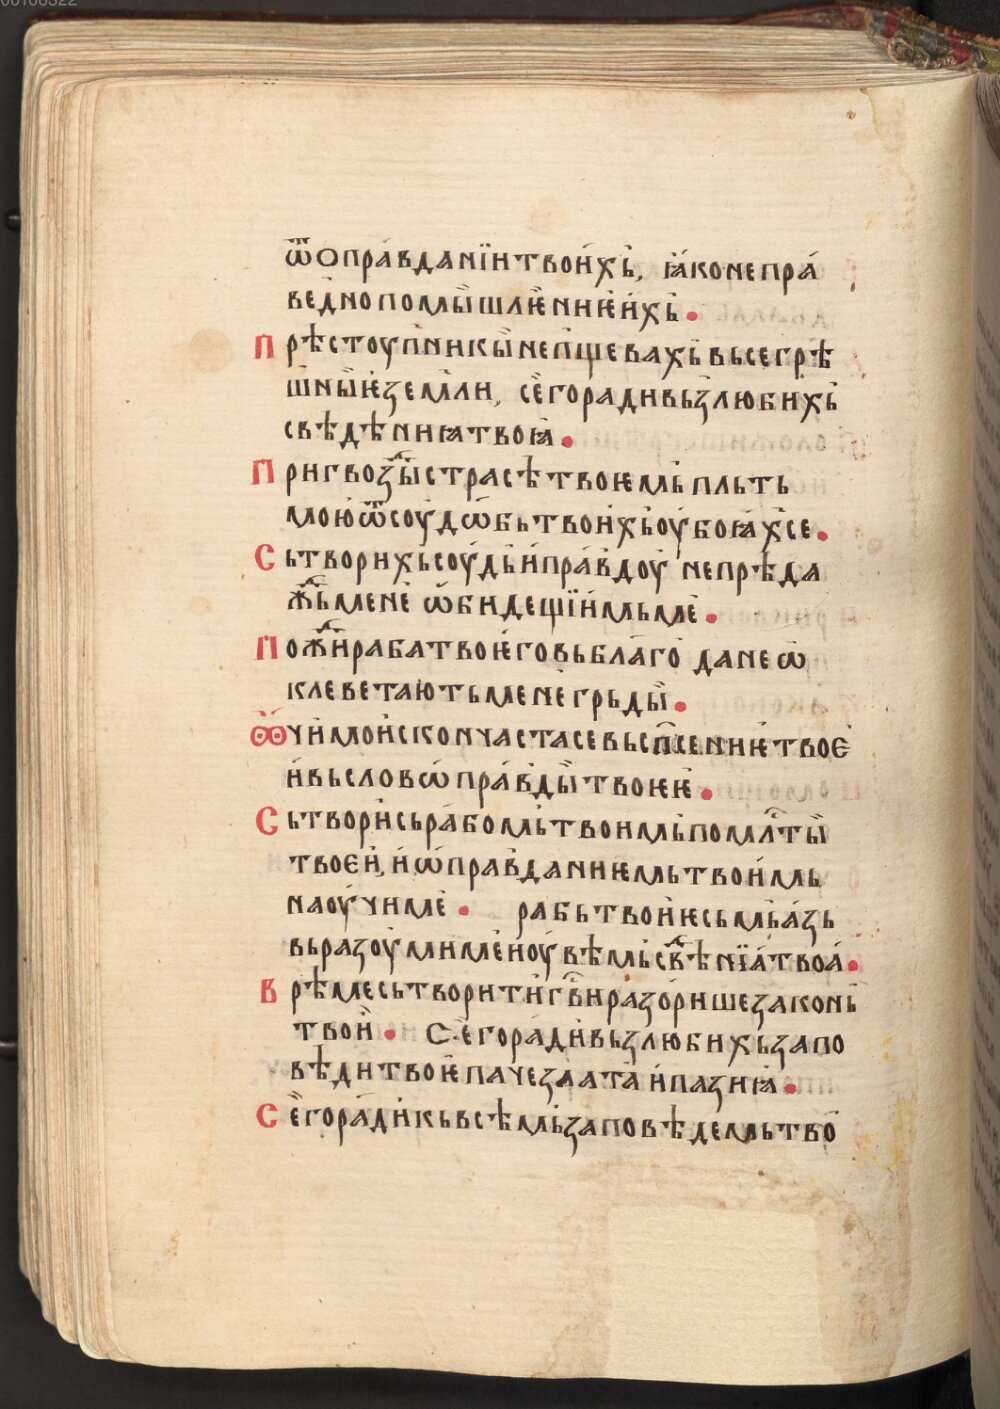 00106322
ѿоправданїи твои́хь, ꙗ́ко непра́
ве́дно помꙑшлѥ́ниѥ и́хь.
Прѣстоу́пникꙑ непщевахь вьсе грѣ́
шнꙑѥ земли, сего ради вьзлюбихь
свѣдѣниꙗ твоꙗ.
Пригвозⷣи страсѣ твоѥмь пльть
мою ѿ соу́дѡ́бь твои́хь оу́боꙗ́х се.
Сьтворихь соу́дь и́ пра́вдоу не прѣда
жⷣь мене ѡ́бидещїи́мь ме.
Пожⷣи раба твоѥ́го вь бла́го да не ѡ
клеветають мене грьды.
Ꙭчи мои исконча́ста се вь спⷭение твоѥ
и́ вь слово пра́вды твоѥѥ.
Сьтвори сь ра́бомь твоимь по млⷭти
твоѥи, и́ ѡ́правданиѥмь твои́мь
наоу́чи ме. рабь твои ѥсьмь а́зь
вьразоу́ми ме и оу́вѣмь свⷣѣнїа́ твоа́.
Врѣме сьтворити гв҃и разо́рише законь
твой. Сего ра́ди вьзлюбихь запо
вѣди твоѥ паче злата и́ пазиꙗ.
Сего ра́ди кь всѣмь заповѣдемь тво